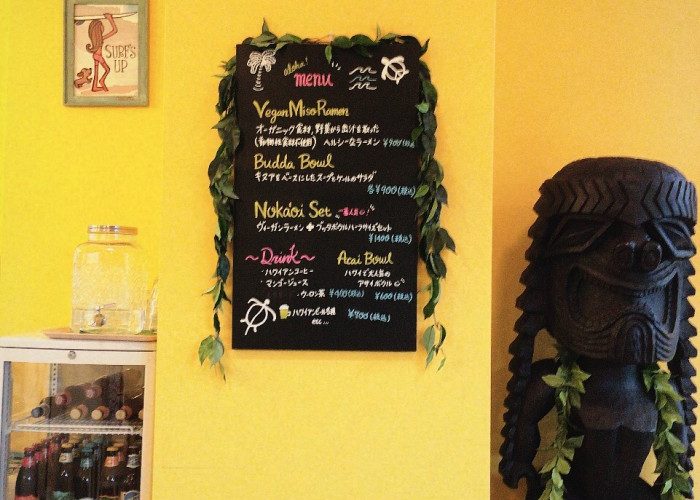 SURF'S
UP
aloha!
menu
Vegan Miso Ramen
オーガニック食材,野菜から出汁を取った
(動物性食材不使用) ヘルシーなラーメン ¥900(税込)
Budda Bowl
キヌアをベースにしたスープとケールのサラダ
各¥900(税込)
Noka'oi Set 一番人気!
ヴィーガンラーメン + ブッダボウルハーフサイズセット
¥1400(税込)
~Drink~
・ハワイアンコーヒー
・マンゴージュース
・ウーロン茶 ¥400(税込)
Acai Bowl
ハワイで大人気の
アサイボウル
¥600(税込)
ハワイアンビール各種
etc... ¥700(税込)